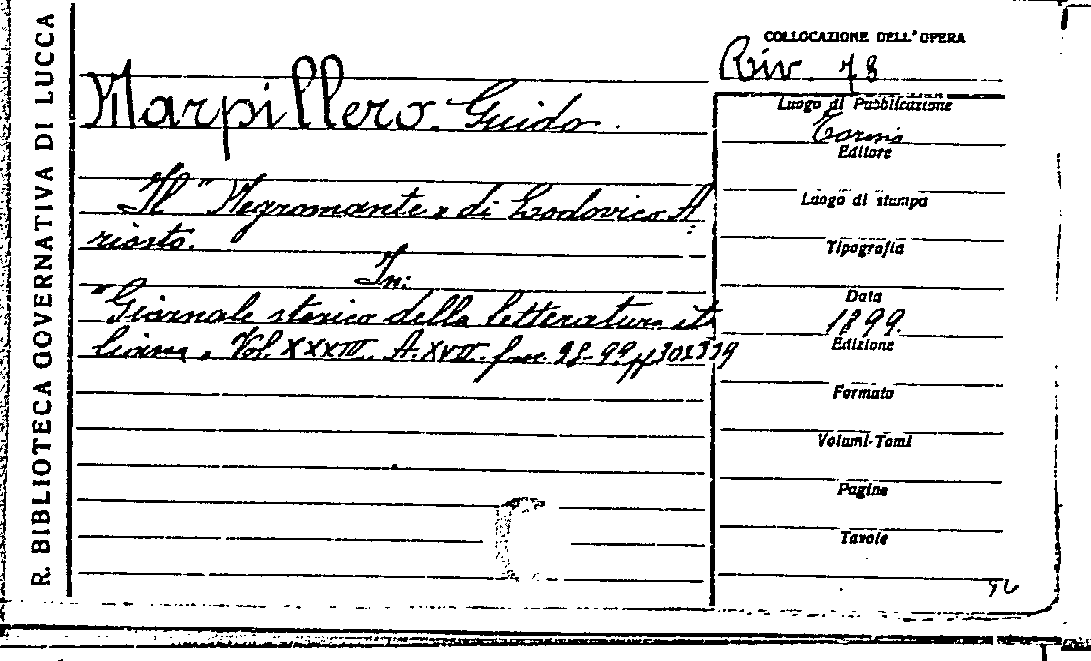 R. BIBLIOTECA GOVERNATIVA DI LUCCA
COLLOCAZIONE DELL'OPERA
Riv. 78
Marpillero Guido
Il "Negromante" di Lodovico A
riosto.
In:
"Giornale storico della letteratura ita
liana, Vol. XXXIII. A. XVII. fasc. 98-99 pp 303 339
Luogo di Pubblicazione
Torino
Editore
Luogo di stampa
Tipografia
Data
1899.
Edizione
Formato
Volumi-Tomi
Pagine
Tavole